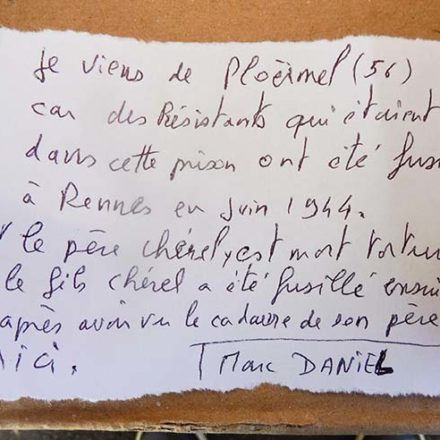 Je viens de Ploërmel (56)
car des Résistants qui étaient
dans cette prison ont été fusi
à Rennes en Juin 1944.
le père chérel, est mort tortu
le fils chérel a été fusillé ensui
après avoir vu le cadavre de son père
ici.
Marc DANIEL